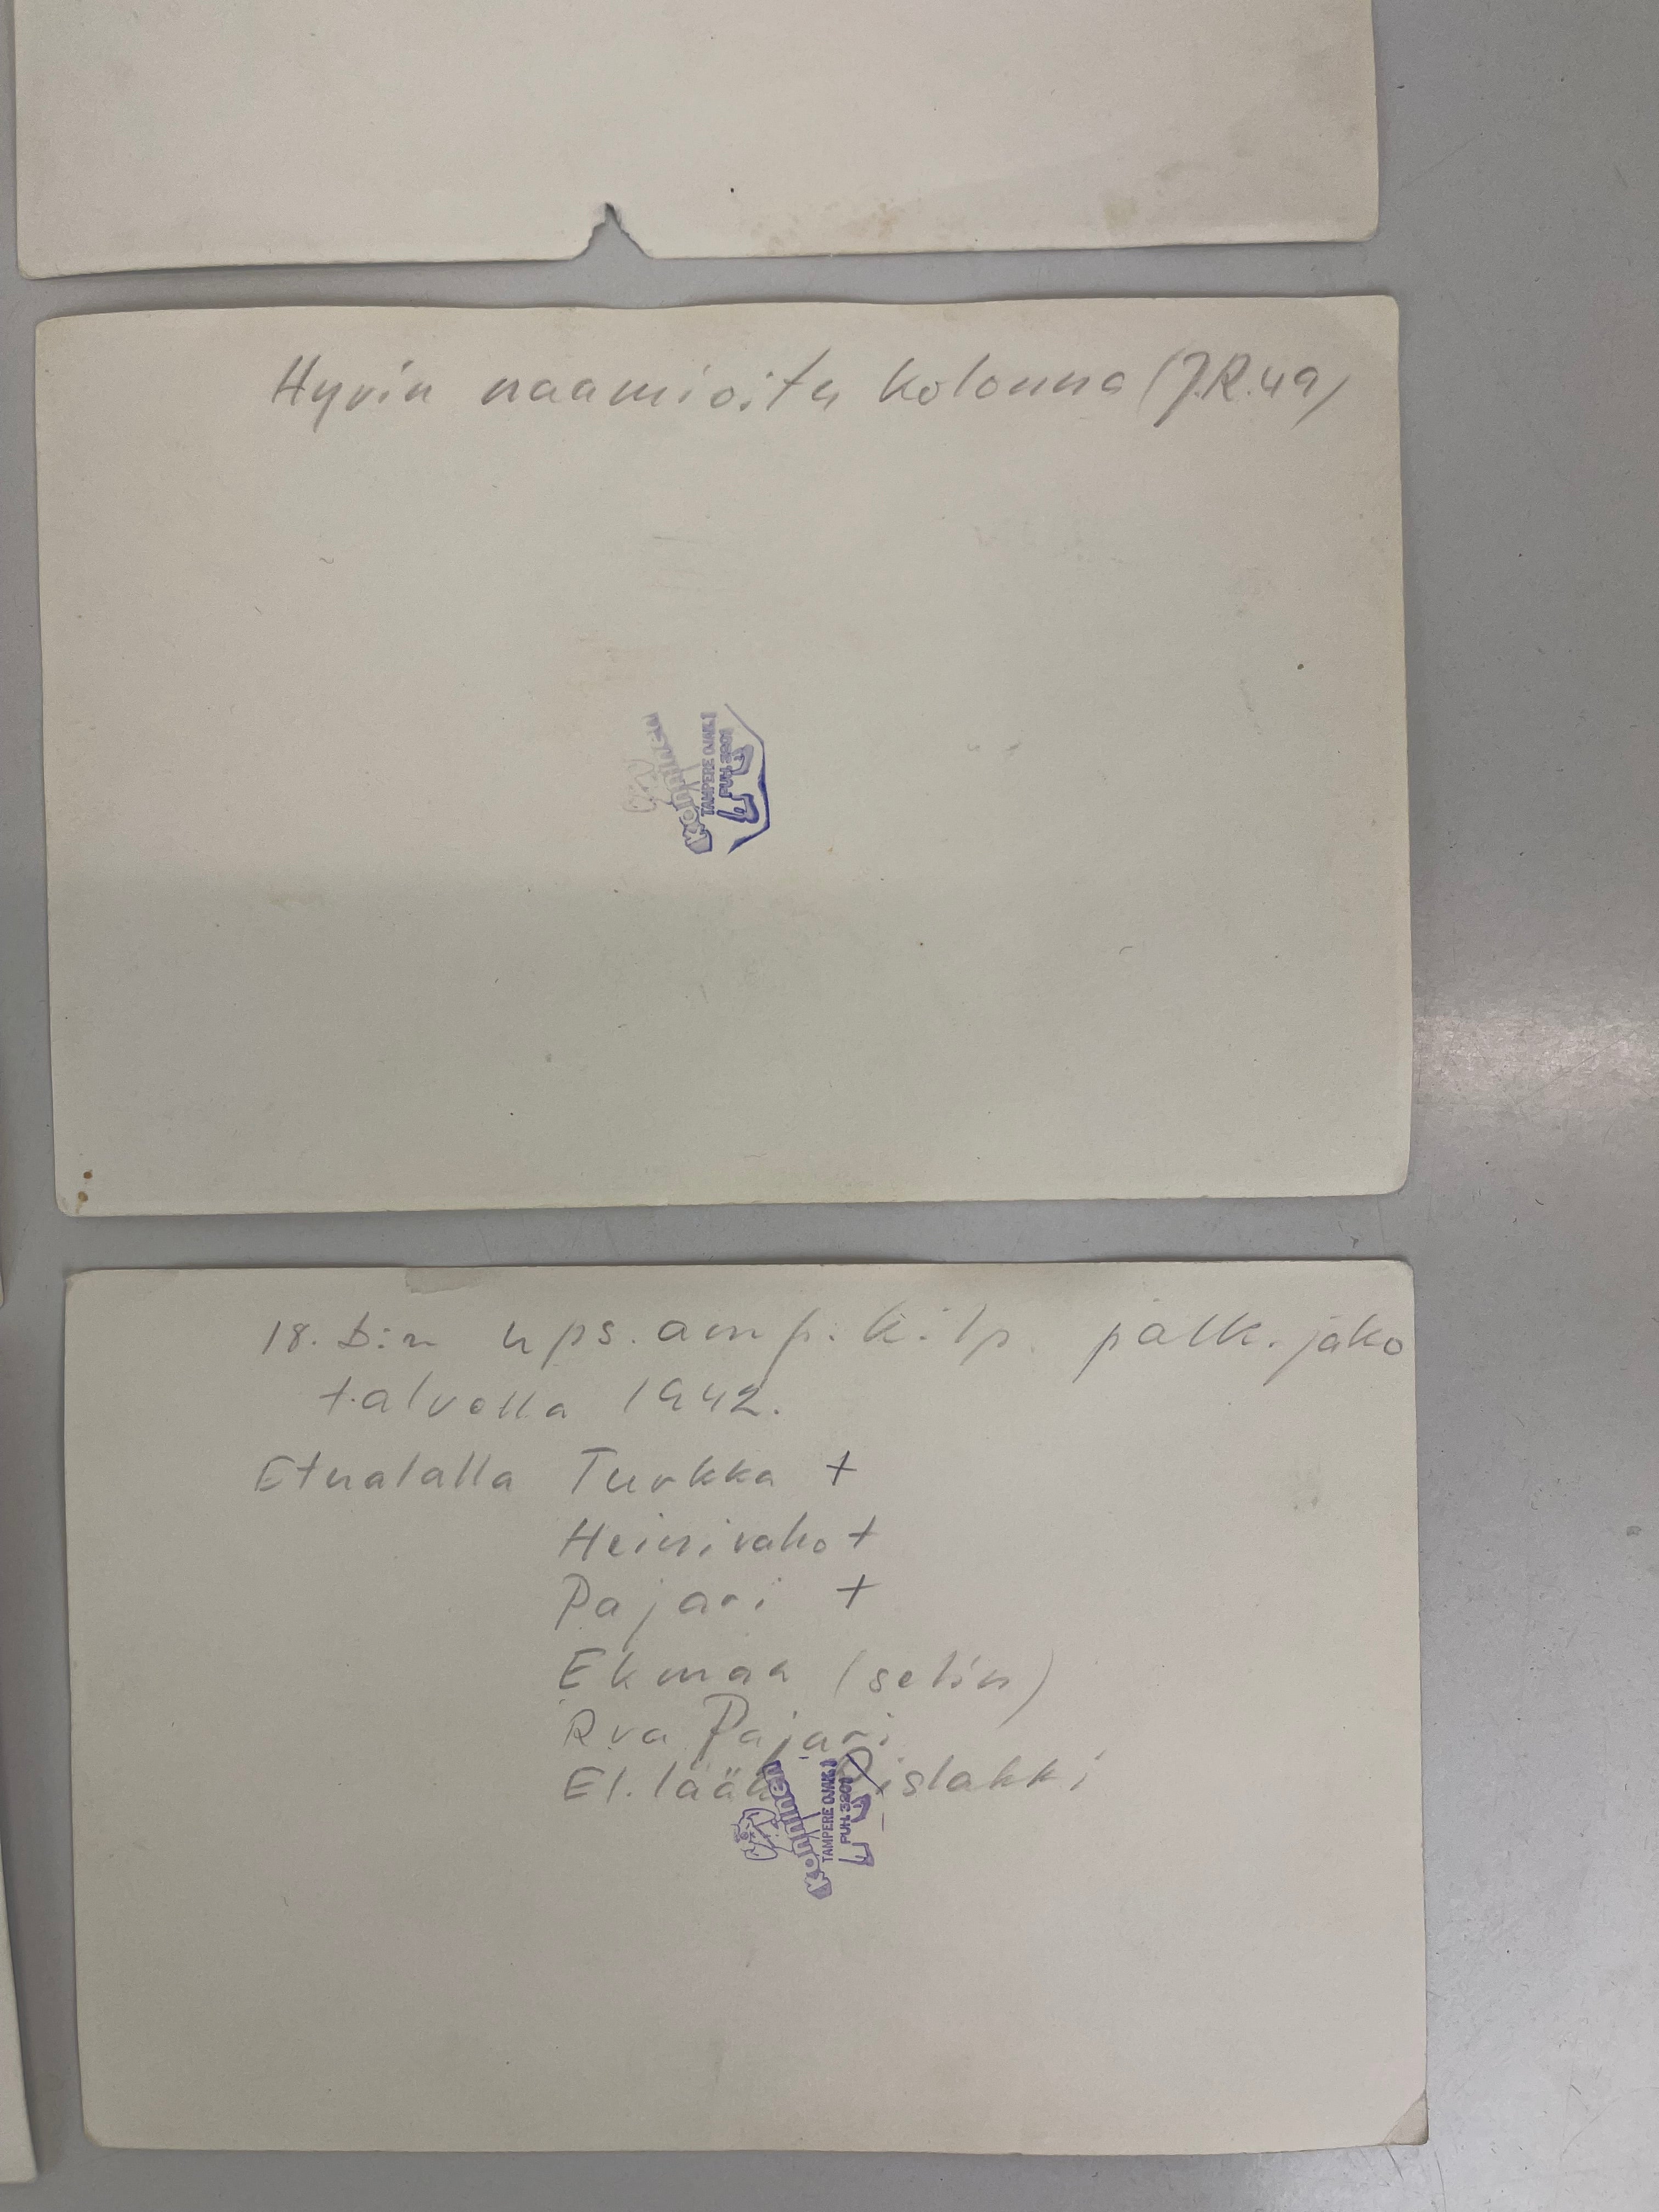 Hyvin naamioitu kolonna (J.R.49)
Konninen
TAMPERE OJAK.1
PUH. 3201
18. D:n ups. amp. kilp. palk. jako
talvella 1942.
Etualalla Turkka +
Heinivaho +
Pajari +
Ekman (selin)
Rva Pajari
El. lääk. Pislakki
Konninen
TAMPERE OJAK.1
PUH. 3201